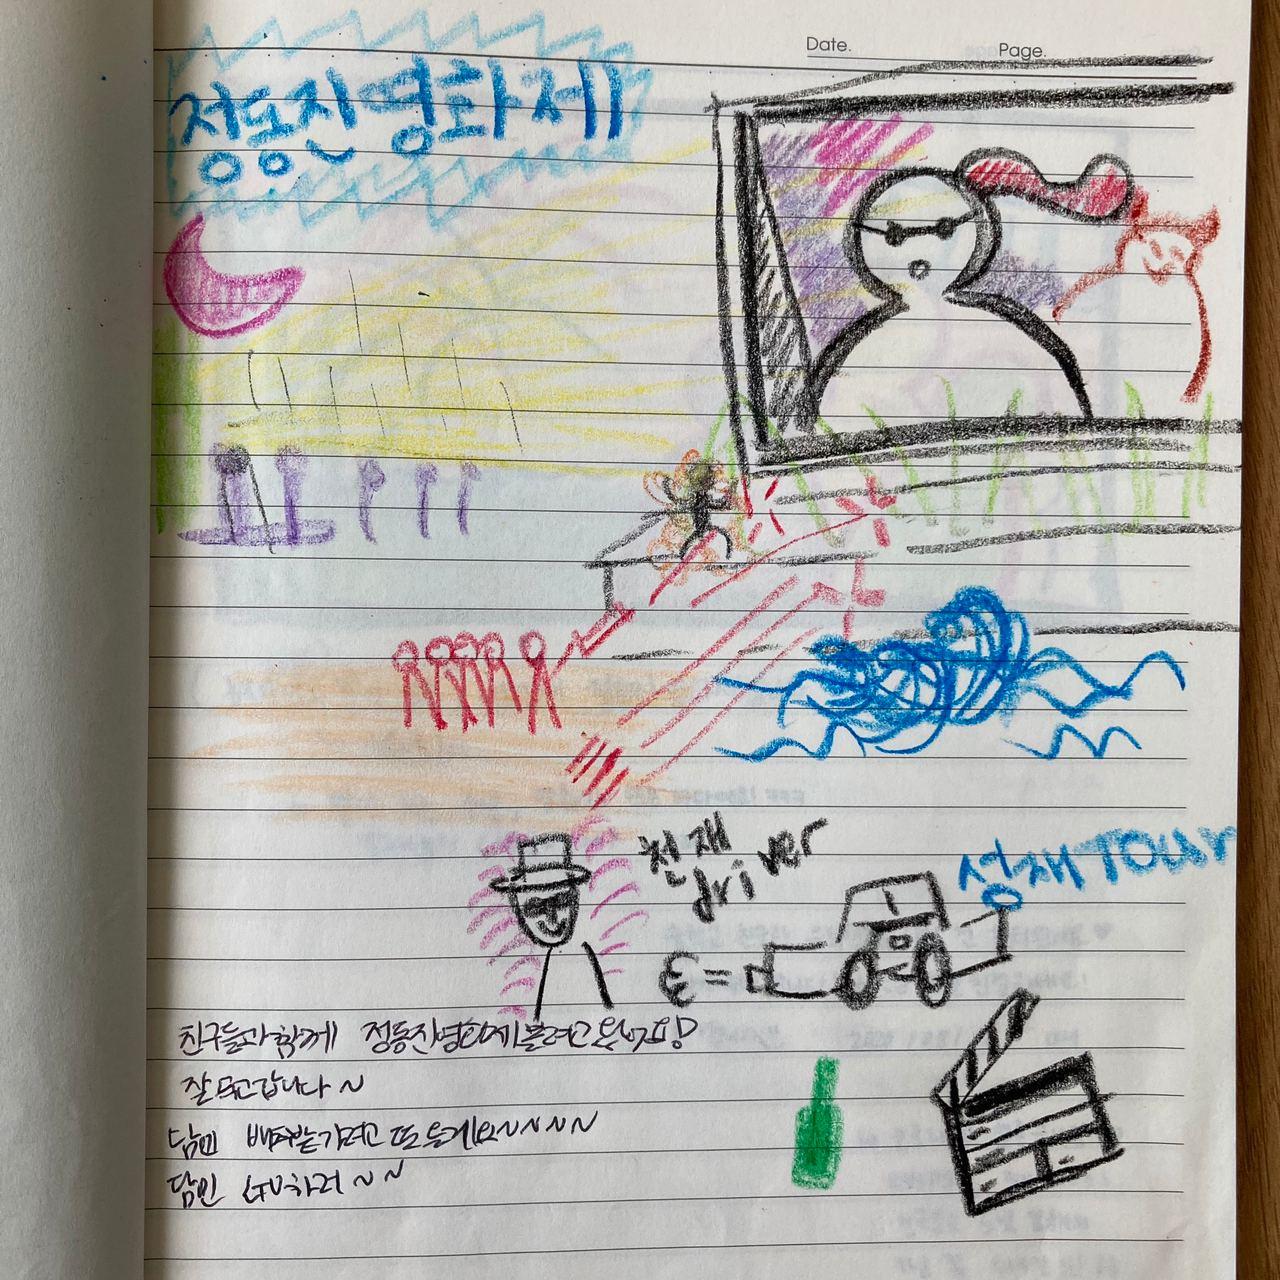 Date.
Page.
정동진영화제
천재
driver
성재 Tour
친구들과 함께 정동진영화제 볼려고 왔어요!
잘 쉬고 갑니다 ~
담엔 배터 받기려고 또 올게요~~~~
담엔 하러 ~ ~